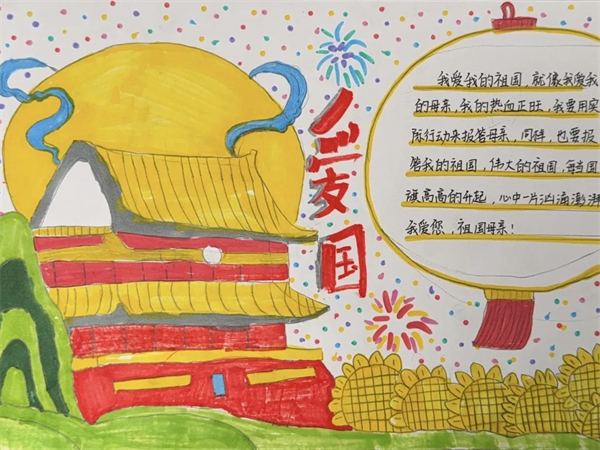 爱国
我爱我的祖国,就像我爱我
的母亲,我的热血正旺,我要用实
际行动来报答母亲,同样,也要报
答我的祖国,伟大的祖国,每当国
旗高高的升起,心中一片汹涌澎湃
我爱您,祖国母亲!